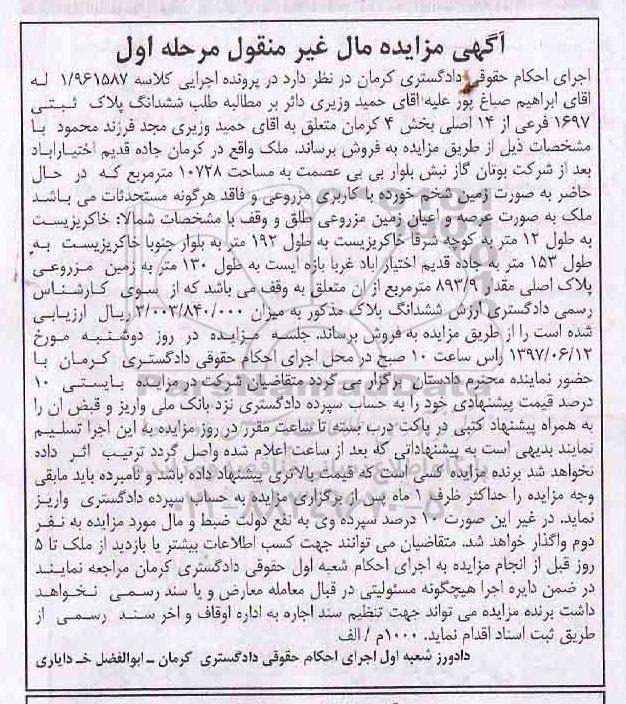 آگهی مزایده مال غیر منقول مرحله اول
اجرای احکام حقوقی دادگستری کرمان در نظر دارد در پرونده اجرایی کلاسه ۱/۹۶۱۵۸۷ له
اقای ابراهیم صباغ پور علیه اقای حمید وزیری دائر بر مطالبه طلب ششدانگ پلاک ثبتی
۱۶۹۷ فرعی از ۱۴ اصلی بخش ۴ کرمان متعلق به اقای حمید وزیری مجد فرزند محمود با
مشخصات ذیل از طریق مزایده به فروش برساند. ملک واقع در کرمان جاده قدیم اختیاراباد
بعد از شرکت بوتان گاز نبش بلوار بی بی عصمت به مساحت ۱۰۷۲۸ مترمربع که در حال
حاضر به صورت زمین شخم خورده با کاربری مزروعی و فاقد هرگونه مستحدثات می باشد
ملک به صورت عرصه و اعیان زمین مزروعی طلق و وقف با مشخصات شمالا: خاکریزیست
به طول ۱۲ متر به کوچه شرقا خاکریزیست به طول ۱۹۲ متر به بلوار جنوبا خاکریزیست به
طول ۱۵۳ متر به جاده قدیم اختیار اباد غربا بازه ایست به طول ۱۳۰ متر به زمین مزروعی
پلاک اصلی مقدار ۸۹۳/۹ مترمربع از ان متعلق به وقف می باشد که از سوی کارشناس
رسمی دادگستری ارزش ششدانگ پلاک مذکور به میزان ۳/۰۰۳/۸۴۰/۰۰۰ ریال ارزیابی
شده است را از طریق مزایده به فروش برساند. جلسه مزایده در روز دوشنبه مورخ
۱۳۹۷/۰۶/۱۲ راس ساعت ۱۰ صبح در محل اجرای احکام حقوقی دادگستری کرمان با
حضور نماینده محترم دادستان برگزار می گردد متقاضیان شرکت در مزایده بایستی ۱۰
درصد قیمت پیشنهادی خود را به حساب سپرده دادگستری نزد بانک ملی واریز و قبض ان را
به همراه پیشنهاد کتبی در پاکت درب بسته تا ساعت مقرر در روز مزایده به این اجرا تسلیم
نمایند بدیهی است به پیشنهاداتی که بعد از ساعت اعلام شده واصل گردد ترتیب اثر داده
نخواهد شد برنده مزایده کسی است که قیمت بالاتری پیشنهاد داده باشد و نامبرده باید مابقی
وجه مزایده را حداکثر ظرف ۱ ماه پس از برگزاری مزایده به حساب سپرده دادگستری واریز
نماید. در غیر این صورت ۱۰ درصد سپرده وی به نفع دولت ضبط و مال مورد مزایده به نفر
دوم واگذار خواهد شد. متقاضیان می توانند جهت کسب اطلاعات بیشتر یا بازدید از ملک تا ۵
روز قبل از انجام مزایده به اجرای احکام شعبه اول حقوقی دادگستری کرمان مراجعه نمایند
در ضمن دایره اجرا هیچگونه مسئولیتی در قبال معامله معارض و یا سند رسمی نخواهد
داشت برنده مزایده می تواند جهت تنظیم سند اجاره به اداره اوقاف و اخر سند رسمی از
طریق ثبت اسناد اقدام نماید. ۱۰۰۰م / الف
دادورز شعبه اول اجرای احکام حقوقی دادگستری کرمان ـ ابوالفضل خدایاری